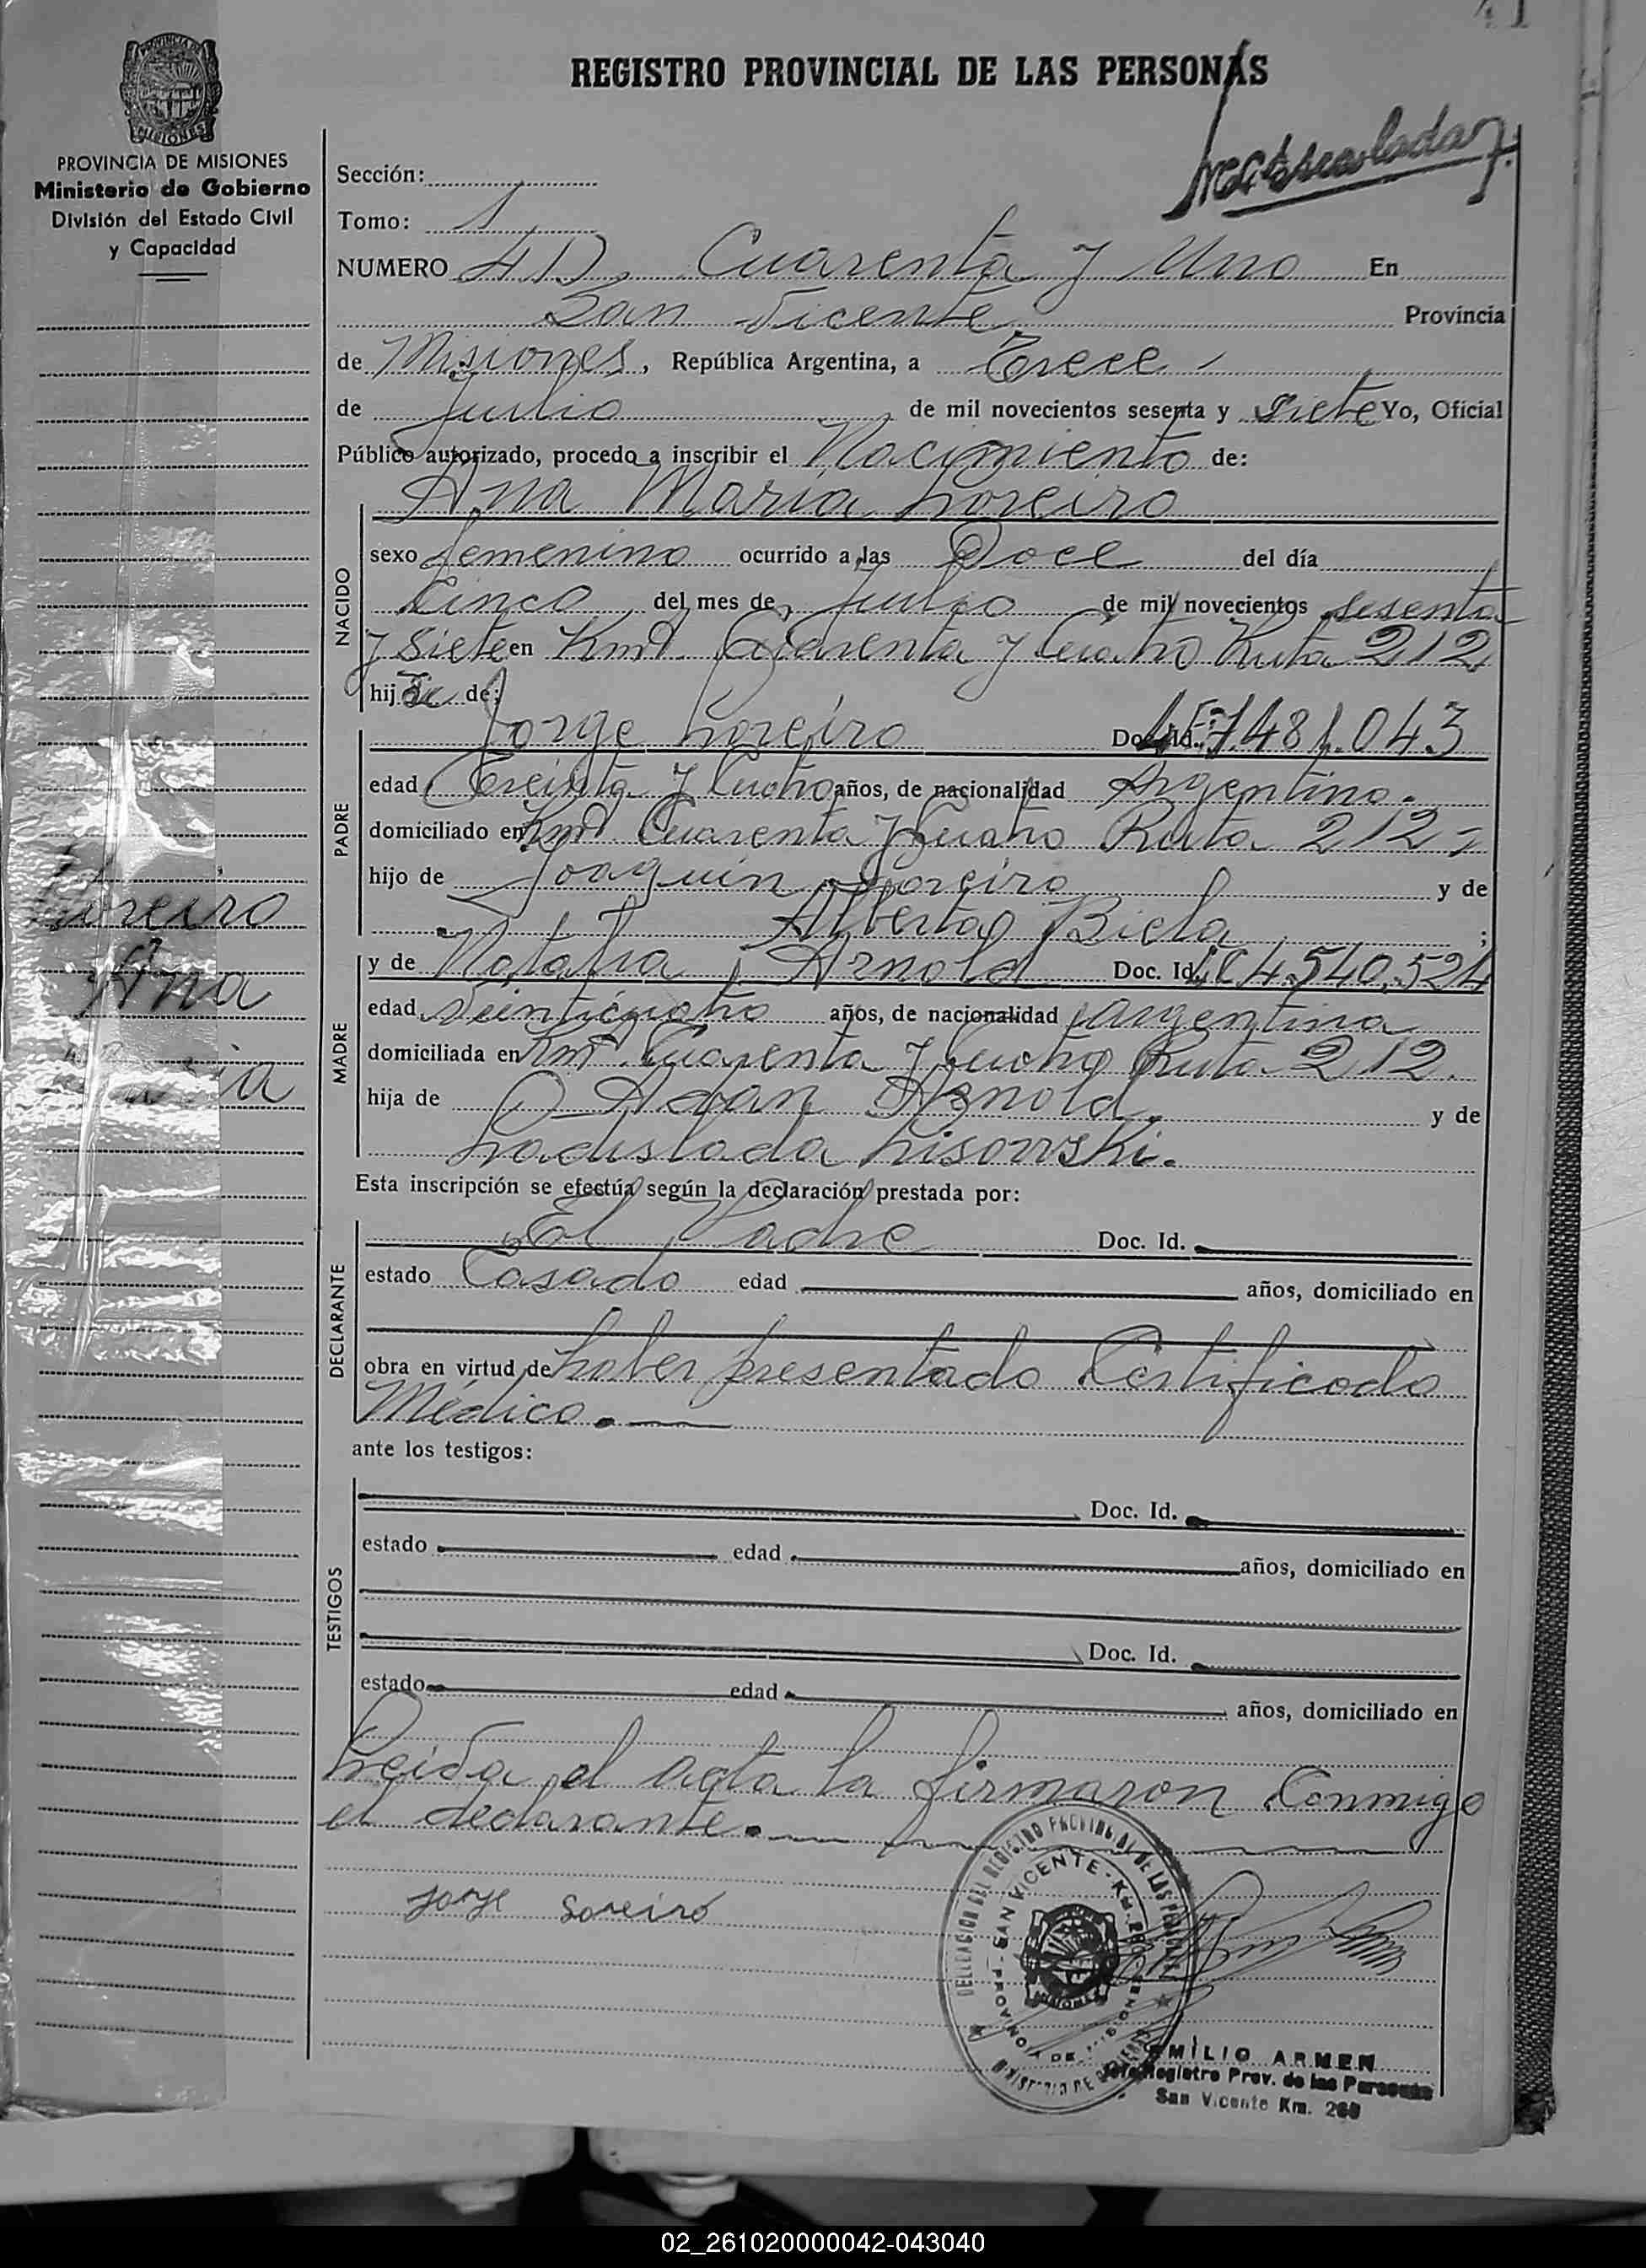 41
REGISTRO PROVINCIAL DE LAS PERSONAS
PROVINCIA DE MISIONES
Ministerio de Gobierno
División del Estado Civil
y Capacidad
Sección:
Tomo: 1
NUMERO 41). Cuarenta y Uno En
San Vicente Provincia
de Misiones, República Argentina, a Trece
de Julio de mil novecientos sesenta y siete Yo, Oficial
Público autorizado, procedo a inscribir el Nacimiento de:
Ana Maria Loreiro
NACIDO
sexo femenino ocurrido a las Doce del día
Cinco del mes de Julio de mil novecientos sesenta
y siete en Kmt. Cuarenta y Cuatro Ruta 212
hij de:
PADRE
Jorge Loreiro Doc. Id. 7.481.043
edad Treinta y Cuatro años, de nacionalidad Argentino.
domiciliado en Kmt. Cuarenta y Cuatro Ruta 212
hijo de Joaquin Loreiro y de
Alberta Biela ;
MADRE
y de Natalia Arnold Doc. Id. LC 4.540.524
edad Veinticuatro años, de nacionalidad argentina
domiciliada en Kmt. Cuarenta y Cuatro Ruta 212.
hija de Adan Arnold. y de
Ladislada Lisowski.
Loreiro
Ana
Esta inscripción se efectúa según la declaración prestada por:
DECLARANTE
El Padre Doc. Id.
estado Casado edad años, domiciliado en
obra en virtud de haber presentado Certificado
Médico.
ante los testigos:
TESTIGOS
Doc. Id.
estado edad años, domiciliado en
Doc. Id.
estado edad años, domiciliado en
Leida el acta la firmaron Conmigo
el declarante.
Jorge Loreiro
DELEGACION DEL REGISTRO PROVINCIAL DE LAS PERSONAS
SAN VICENTE - Km.
PROVINCIA DE MISIONES
MINISTERIO DE GOBIERNO
MISIONES
EMILIO ARMEN
Jefe Registro Prov. de las Personas
San Vicente Km. 260
02_261020000042-043040